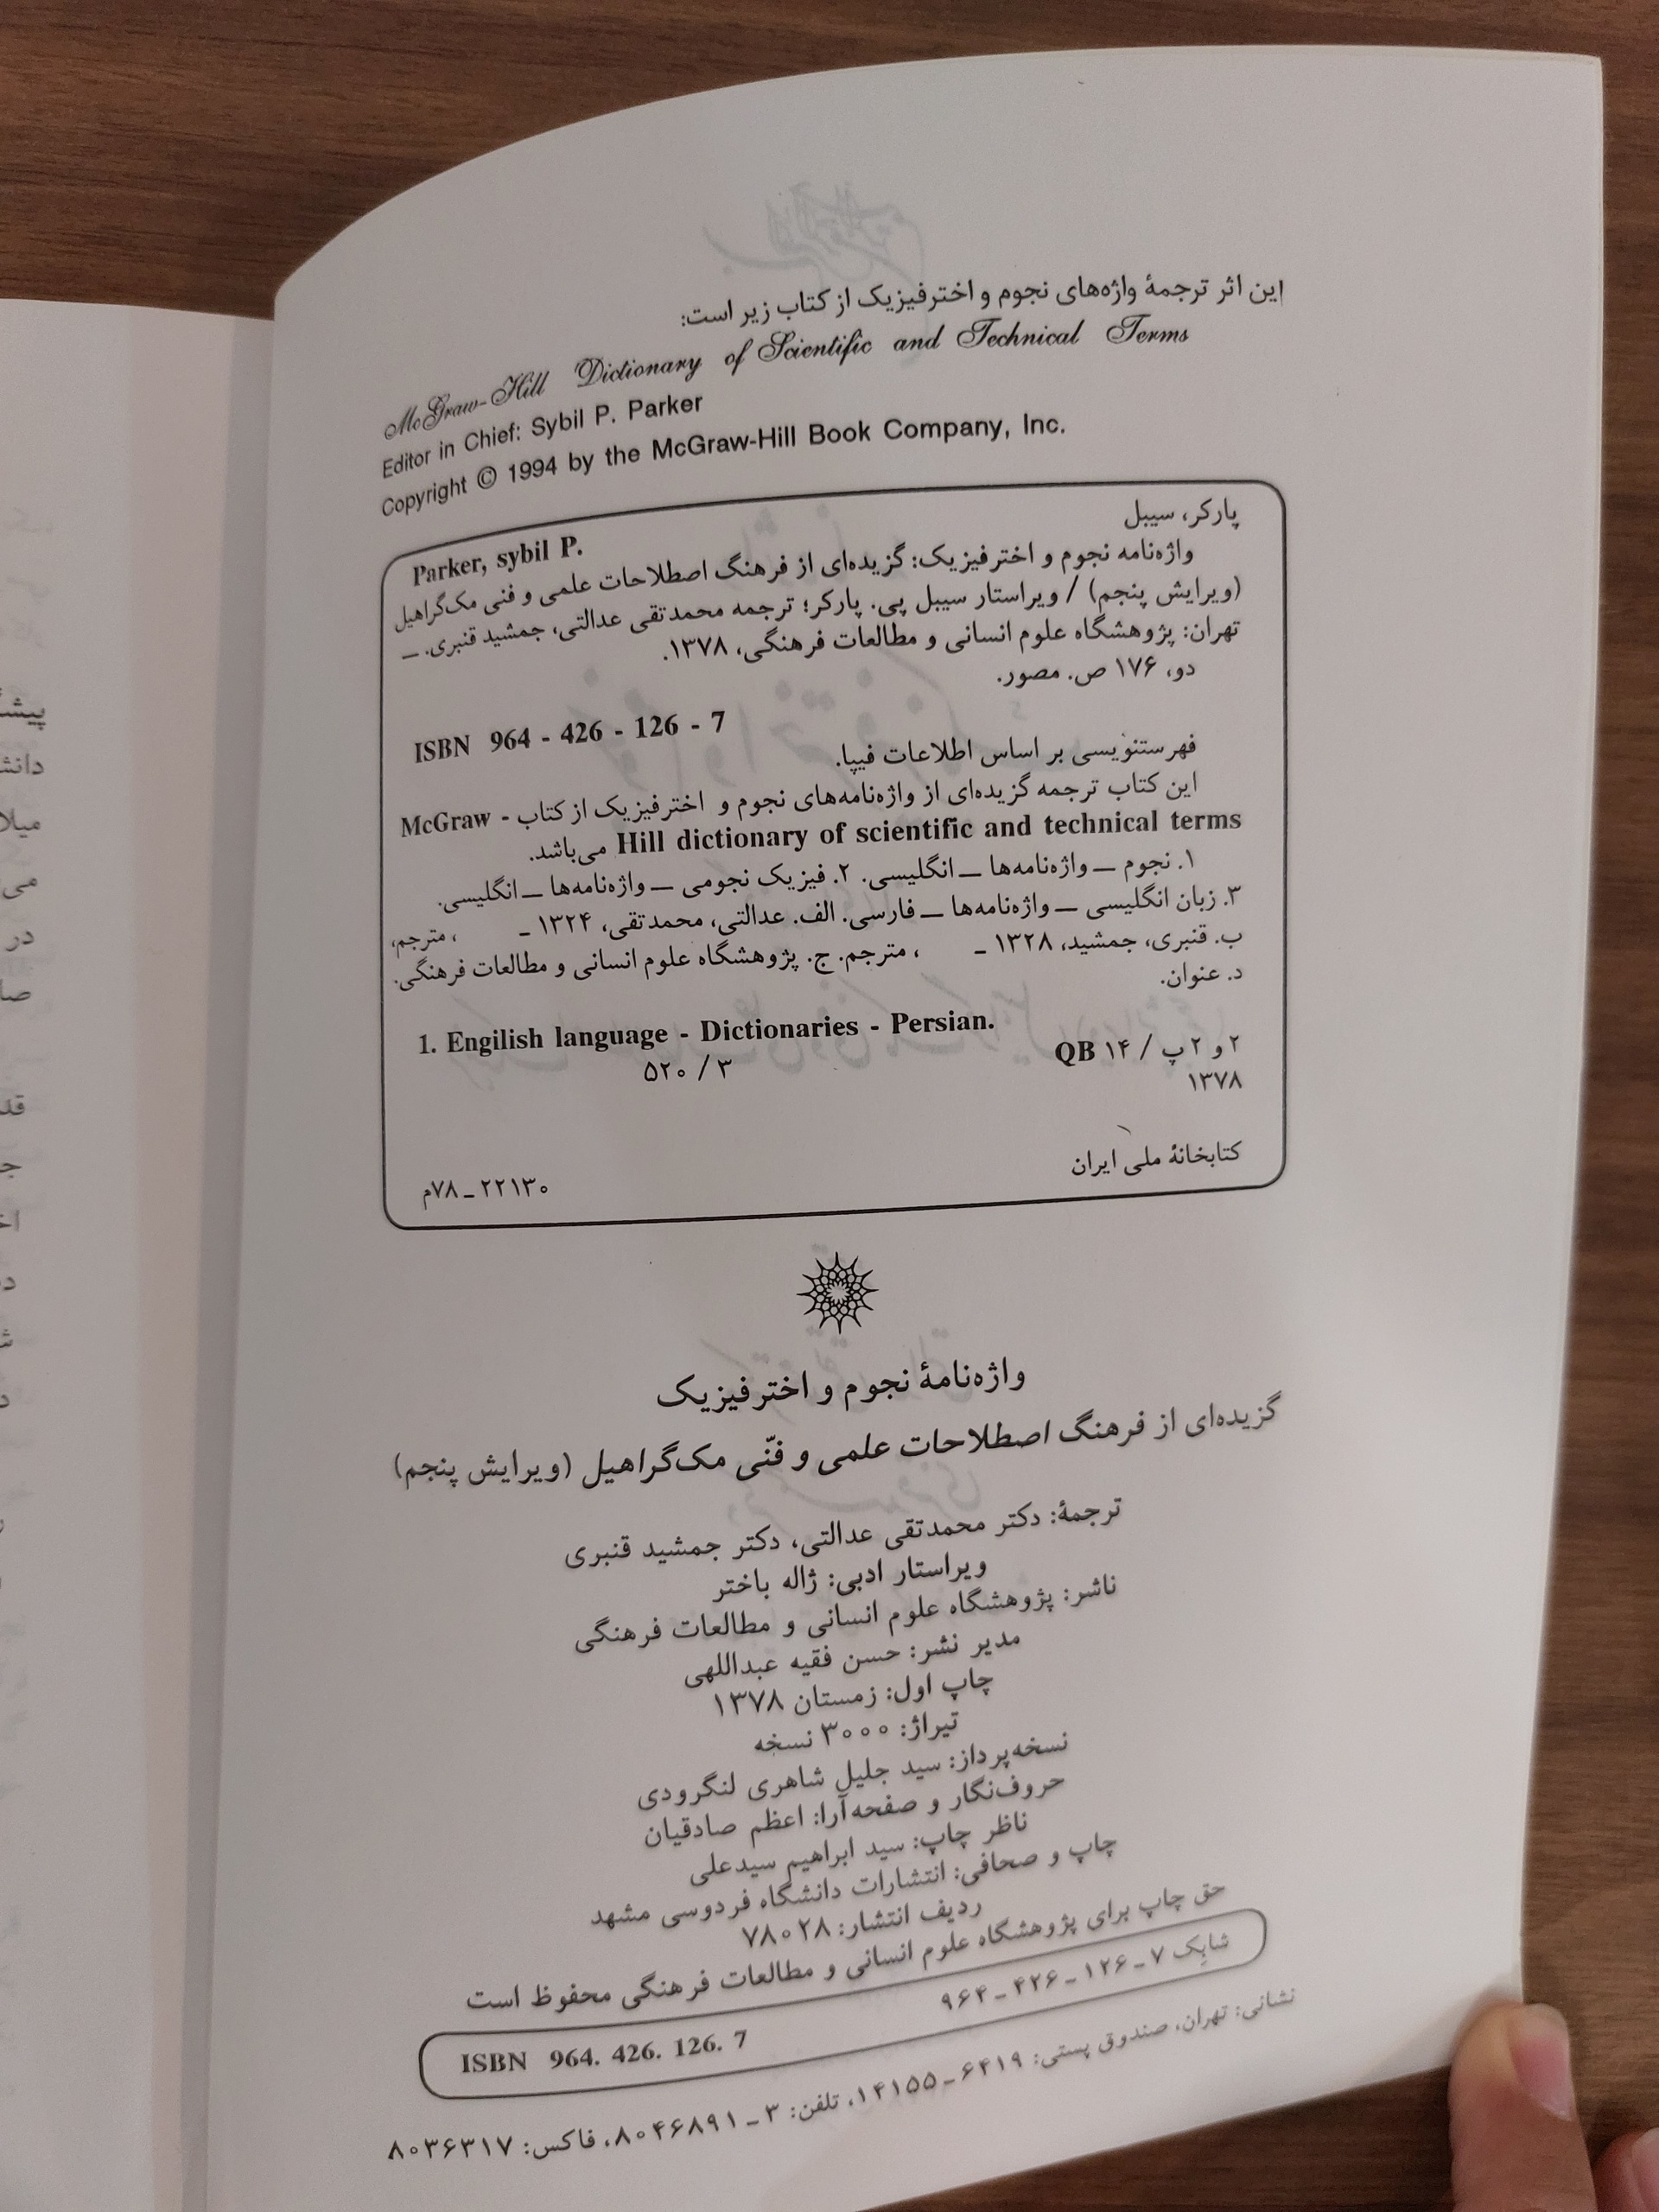 این اثر ترجمهٔ واژه‌های نجوم و اخترفیزیک از کتاب زیر است:
McGraw-Hill Dictionary of Scientific and Technical Terms
Editor in Chief: Sybil P. Parker
Copyright © 1994 by the McGraw-Hill Book Company, Inc.
پارکر، سیبل
Parker, sybil P.
واژه‌نامه نجوم و اخترفیزیک: گزیده‌ای از فرهنگ اصطلاحات علمی و فنی مک‌گراهیل
(ویرایش پنجم) / ویراستار سیبل پی. پارکر؛ ترجمه محمدتقی عدالتی، جمشید قنبری. ـ
تهران: پژوهشگاه علوم انسانی و مطالعات فرهنگی، ۱۳۷۸.
دو، ۱۷۶ ص. مصور.
ISBN 964 - 426 - 126 - 7
فهرستنویسی بر اساس اطلاعات فیپا.
این کتاب ترجمه گزیده‌ای از واژه‌نامه‌های نجوم و اخترفیزیک از کتاب McGraw -
Hill dictionary of scientific and technical terms می‌باشد.
۱. نجوم ـ واژه‌نامه‌ها ـ انگلیسی. ۲. فیزیک نجومی ـ واژه‌نامه‌ها ـ انگلیسی.
۳. زبان انگلیسی ـ واژه‌نامه‌ها ـ فارسی. الف. عدالتی، محمدتقی، ۱۳۲۴ ـ ، مترجم،
ب. قنبری، جمشید، ۱۳۲۸ ـ ، مترجم. ج. پژوهشگاه علوم انسانی و مطالعات فرهنگی.
د. عنوان.
1. Engilish language - Dictionaries - Persian.
۲ و ۲ پ / ۱۴ QB
۵۲۰ / ۳
۱۳۷۸
کتابخانهٔ ملی ایران
۲۲۱۳۰ ـ ۷۸م
واژه‌نامهٔ نجوم و اخترفیزیک
گزیده‌ای از فرهنگ اصطلاحات علمی و فنّی مک‌گراهیل (ویرایش پنجم)
ترجمهٔ: دکتر محمدتقی عدالتی، دکتر جمشید قنبری
ویراستار ادبی: ژاله باختر
ناشر: پژوهشگاه علوم انسانی و مطالعات فرهنگی
مدیر نشر: حسن فقیه عبداللهی
چاپ اول: زمستان ۱۳۷۸
تیراژ: ۳۰۰۰ نسخه
نسخه‌پرداز: سید جلیل شاهری لنگرودی
حروف‌نگار و صفحه‌آرا: اعظم صادقیان
ناظر چاپ: سید ابراهیم سیدعلی
چاپ و صحافی: انتشارات دانشگاه فردوسی مشهد
ردیف انتشار: ۷۸۰۲۸
حق چاپ برای پژوهشگاه علوم انسانی و مطالعات فرهنگی محفوظ است
شابک ۷ ـ ۱۲۶ ـ ۴۲۶ ـ ۹۶۴
ISBN 964. 426. 126. 7
نشانی: تهران، صندوق پستی: ۶۴۱۹ ـ ۱۴۱۵۵، تلفن: ۳ ـ ۸۰۴۶۸۹۱، فاکس: ۸۰۳۶۳۱۷